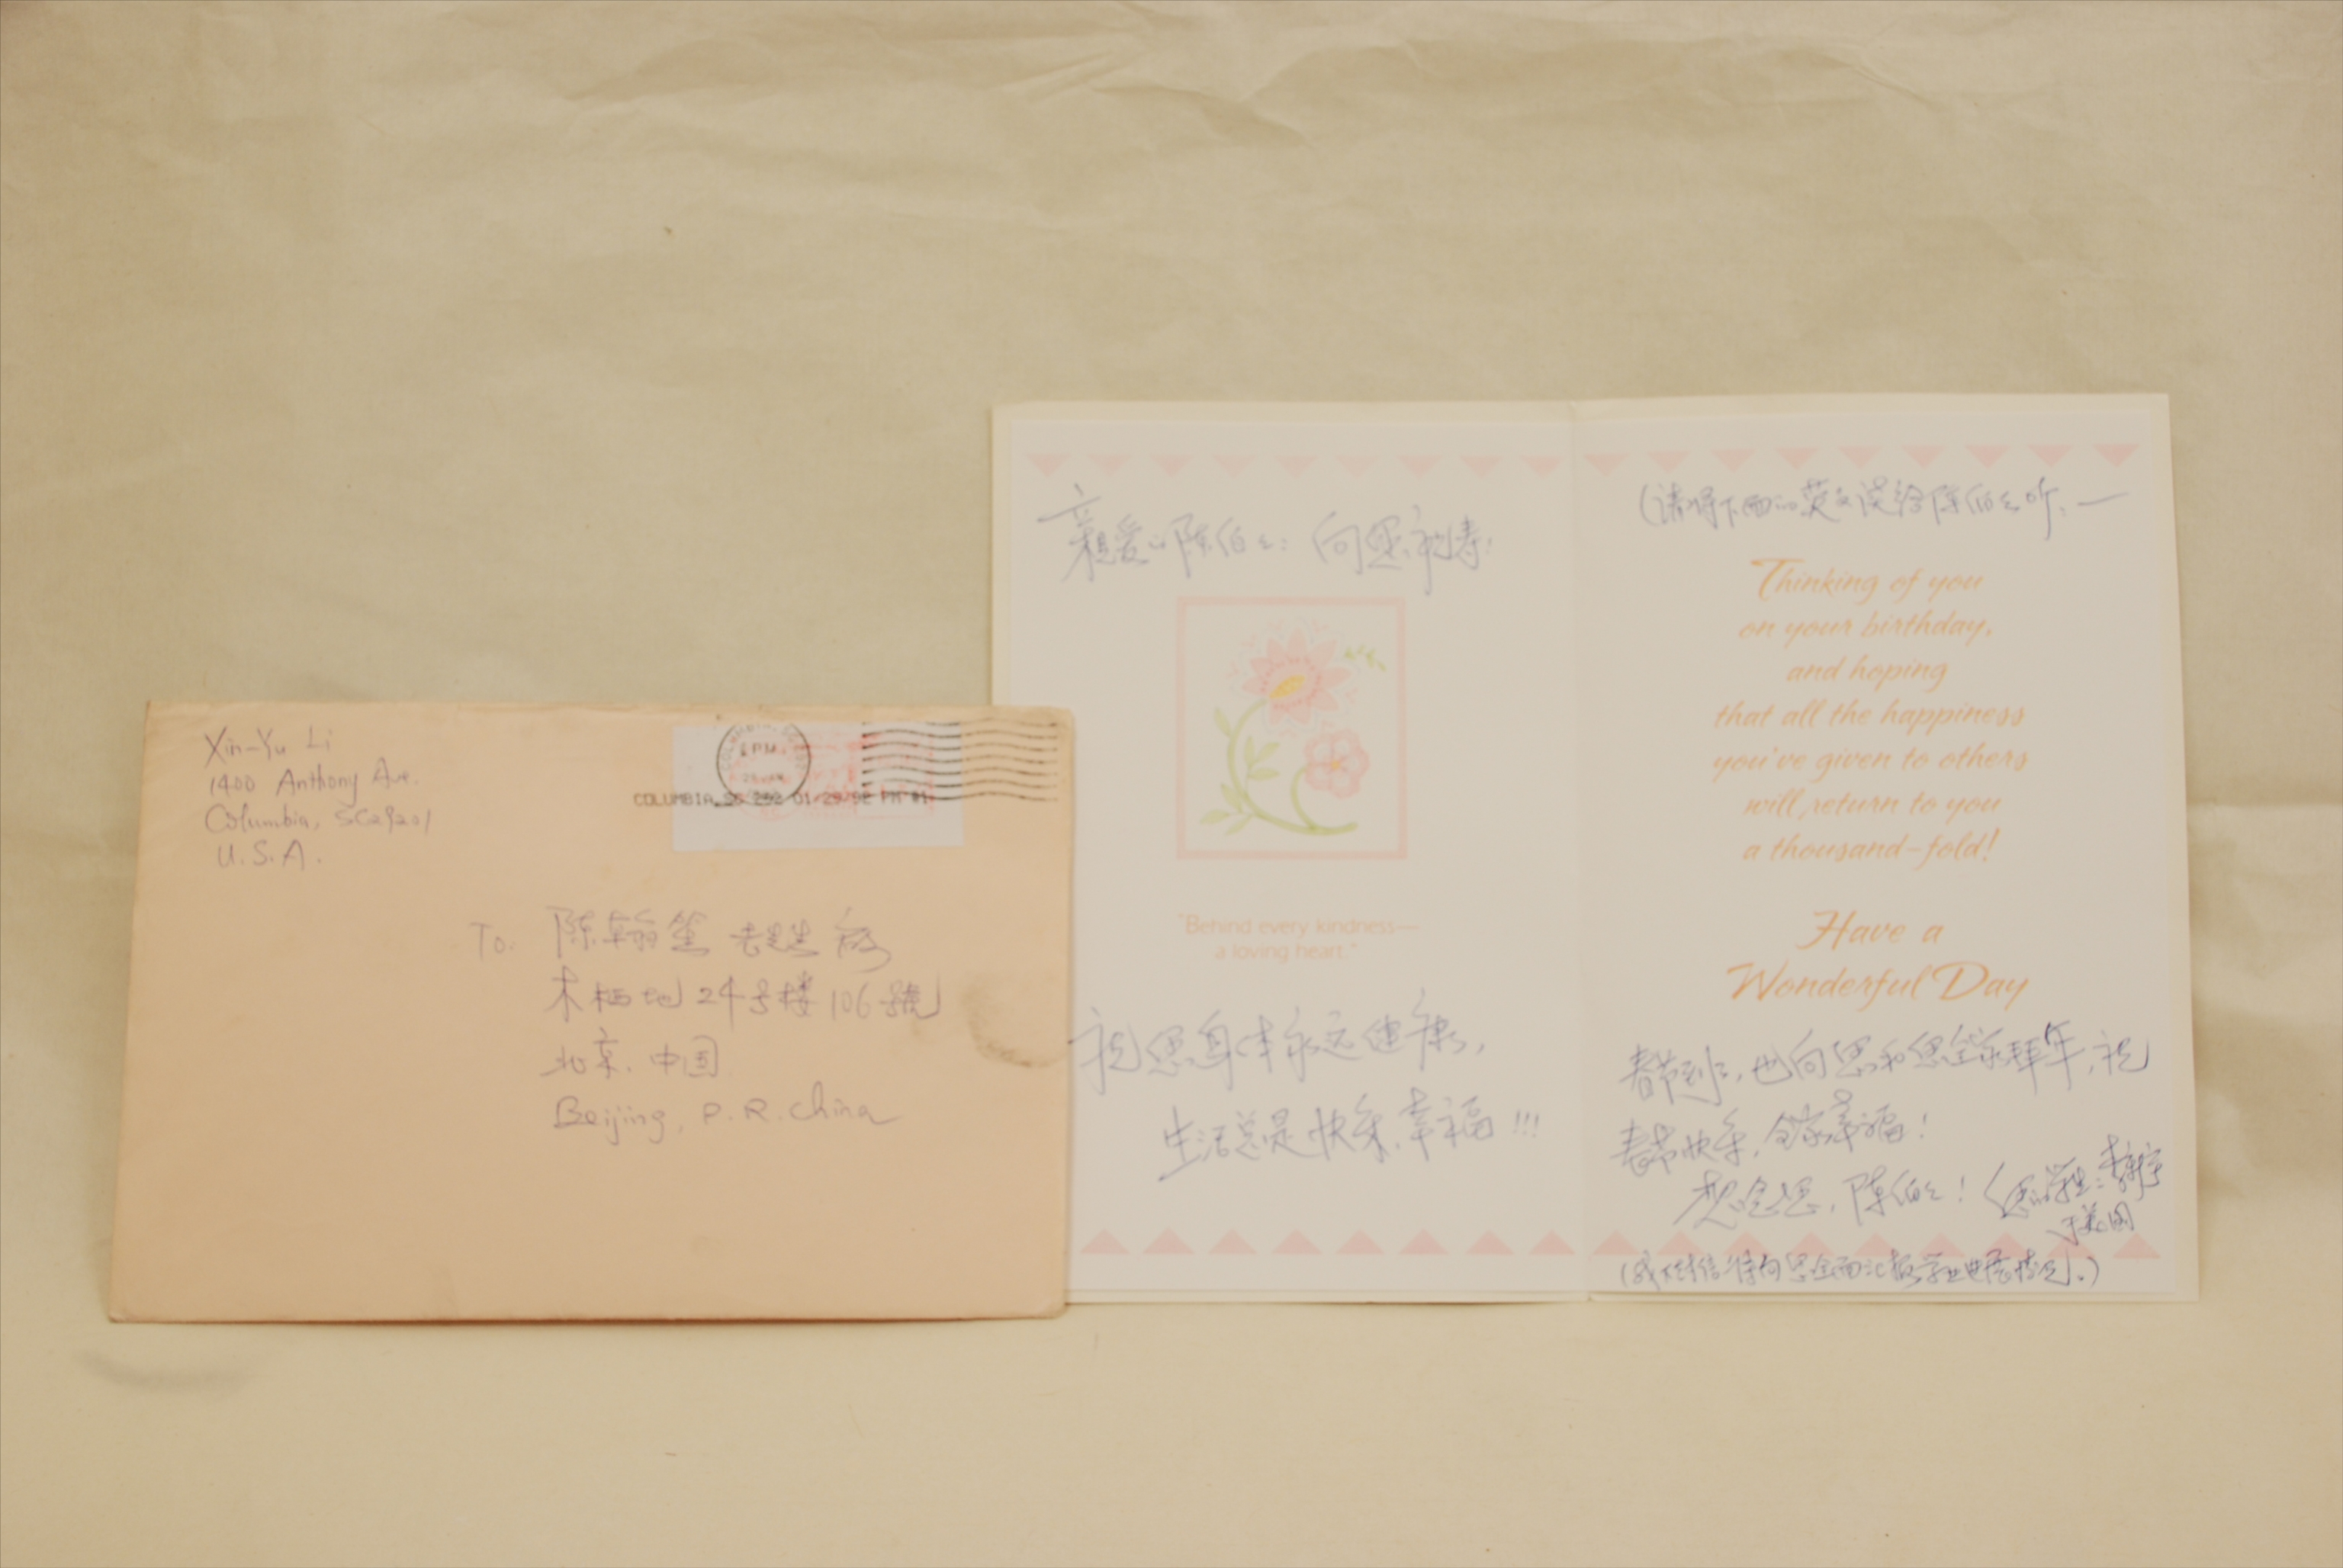 Xin-Yu Li
1400 Anthony Ave.
Columbia, SC29201
U.S.A.
6 PM
COLUMBIA, SC 292 01/29/92 PM #1
To: 陈翰笙 老先生 收
木樨地24号楼106號
北京.中国
Beijing, P.R.China
亲爱的陈伯伯: 向您祝寿!
"Behind every kindness—
a loving heart."
祝您身体永远健康,
生活总是快乐.幸福!!!
(请将下面的英文读给陈伯伯听.—
Thinking of you
on your birthday,
and hoping
that all the happiness
you've given to others
will return to you
a thousand-fold!
Have a
Wonderful Day
春节到了,也向您和您全家拜年,祝
春节快乐,全家幸福!
想念您,陈伯伯! 您的学生:李
于美国
(我下封信将向您全面汇报学业进展情况.)